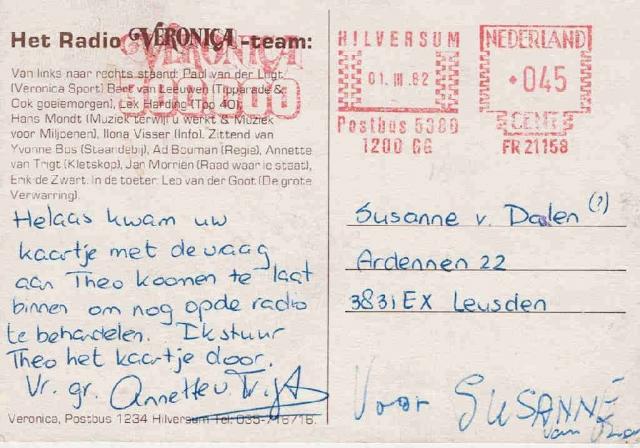 Het Radio VERONICA -team:
Van links naar rechts staand: Paul van der Lugt
(Veronica Sport) Bart van Leeuwen (Tipparade &
Ook goeiemorgen), Lex Harding (Top 40),
Hans Mondt (Muziek terwijl u werkt & Muziek
voor Miljoenen), Ilona Visser (Info). Zittend van
Yvonne Bos (Staandebij), Ad Bouman (Regie), Annette
van Trigt (Kletskop), Jan Morrien (Raad waar ie staat),
Erik de Zwart. In de toeter: Leo van der Goot (De grote
Verwarring).
VERONICA
HILVERSUM
01. III 82
Postbus 5380
1200 GG
NEDERLAND
045
CENT
FR 21158
Helaas kwam uw
kaartje met de vraag
aan Theo Koomen te laat
binnen om nog op de radio
te behandelen. Ik stuur
Theo het kaartje door.
Vr. gr. Annette v. Trigt
Veronica, Postbus 1234 Hilversum Tel. 035-716716.
Susanne v. Dalen (?)
Ardennen 22
3831 EX Leusden
Voor SUSANNE
van